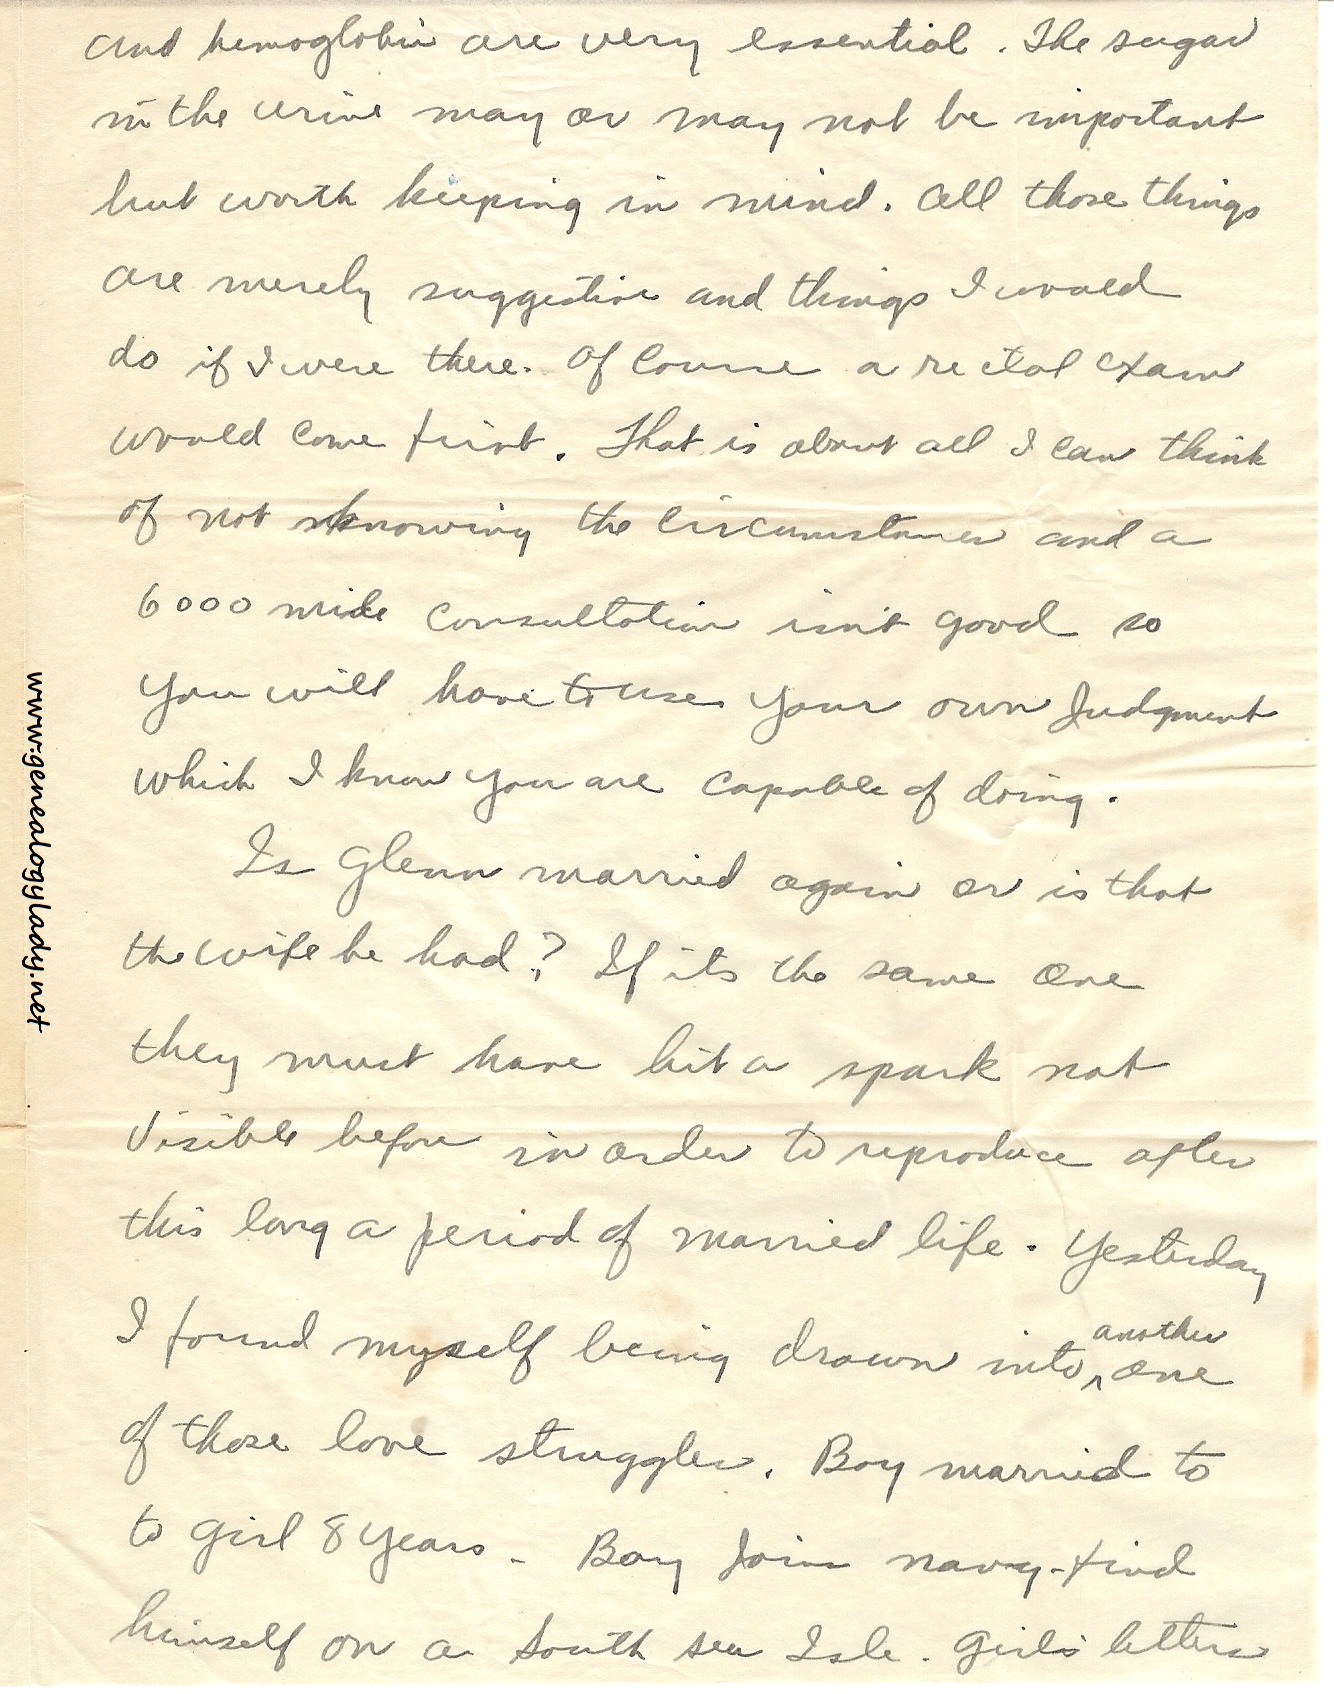 and hemoglobin are very essential. The sugar
in the urine may or may not be important
but worth keeping in mind. All those things
are merely suggestive and things I would
do if I were there. Of course a rectal exam
would come first. That is about all I can think
of not knowing the circumstances and a
6000 mile consultation isn't good so
you will have to use your own judgment
which I know you are capable of doing.
Is Glenn married again or is that
the wife he had? If its the same one
they must have hit a spark not
visible before in order to reproduce after
this long a period of married life. Yesterday
I found myself being drawn into ^another one
of those love struggles. Boy married to
to girl 8 years - Boy join navy - find
himself on a South sea Isle. Girls letters
www.genealogylady.net